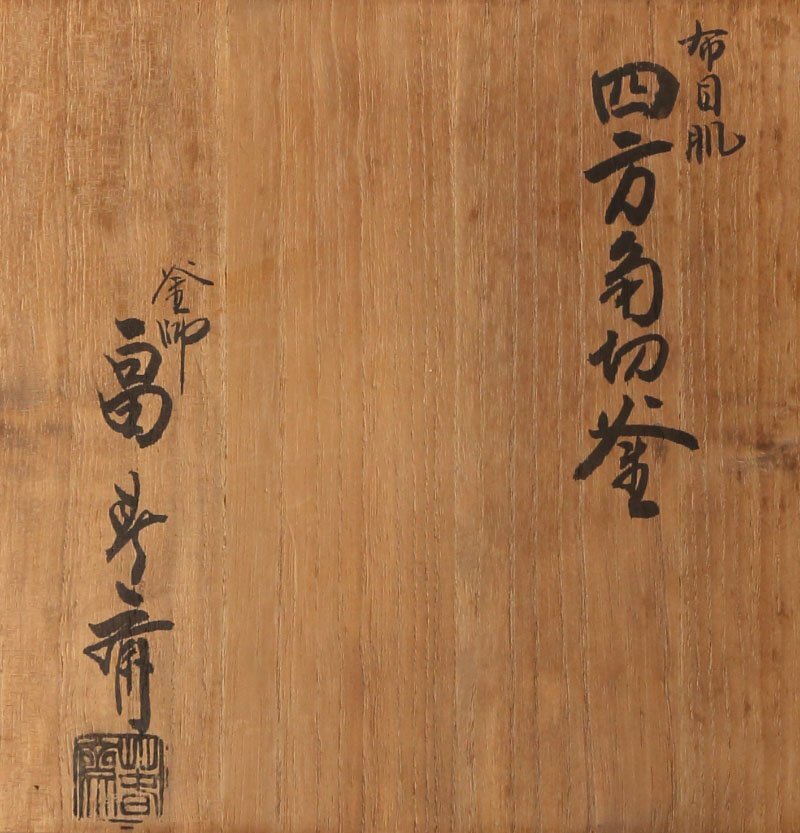 布目肌
四方角切釜
釜師
畠春斎
春斎